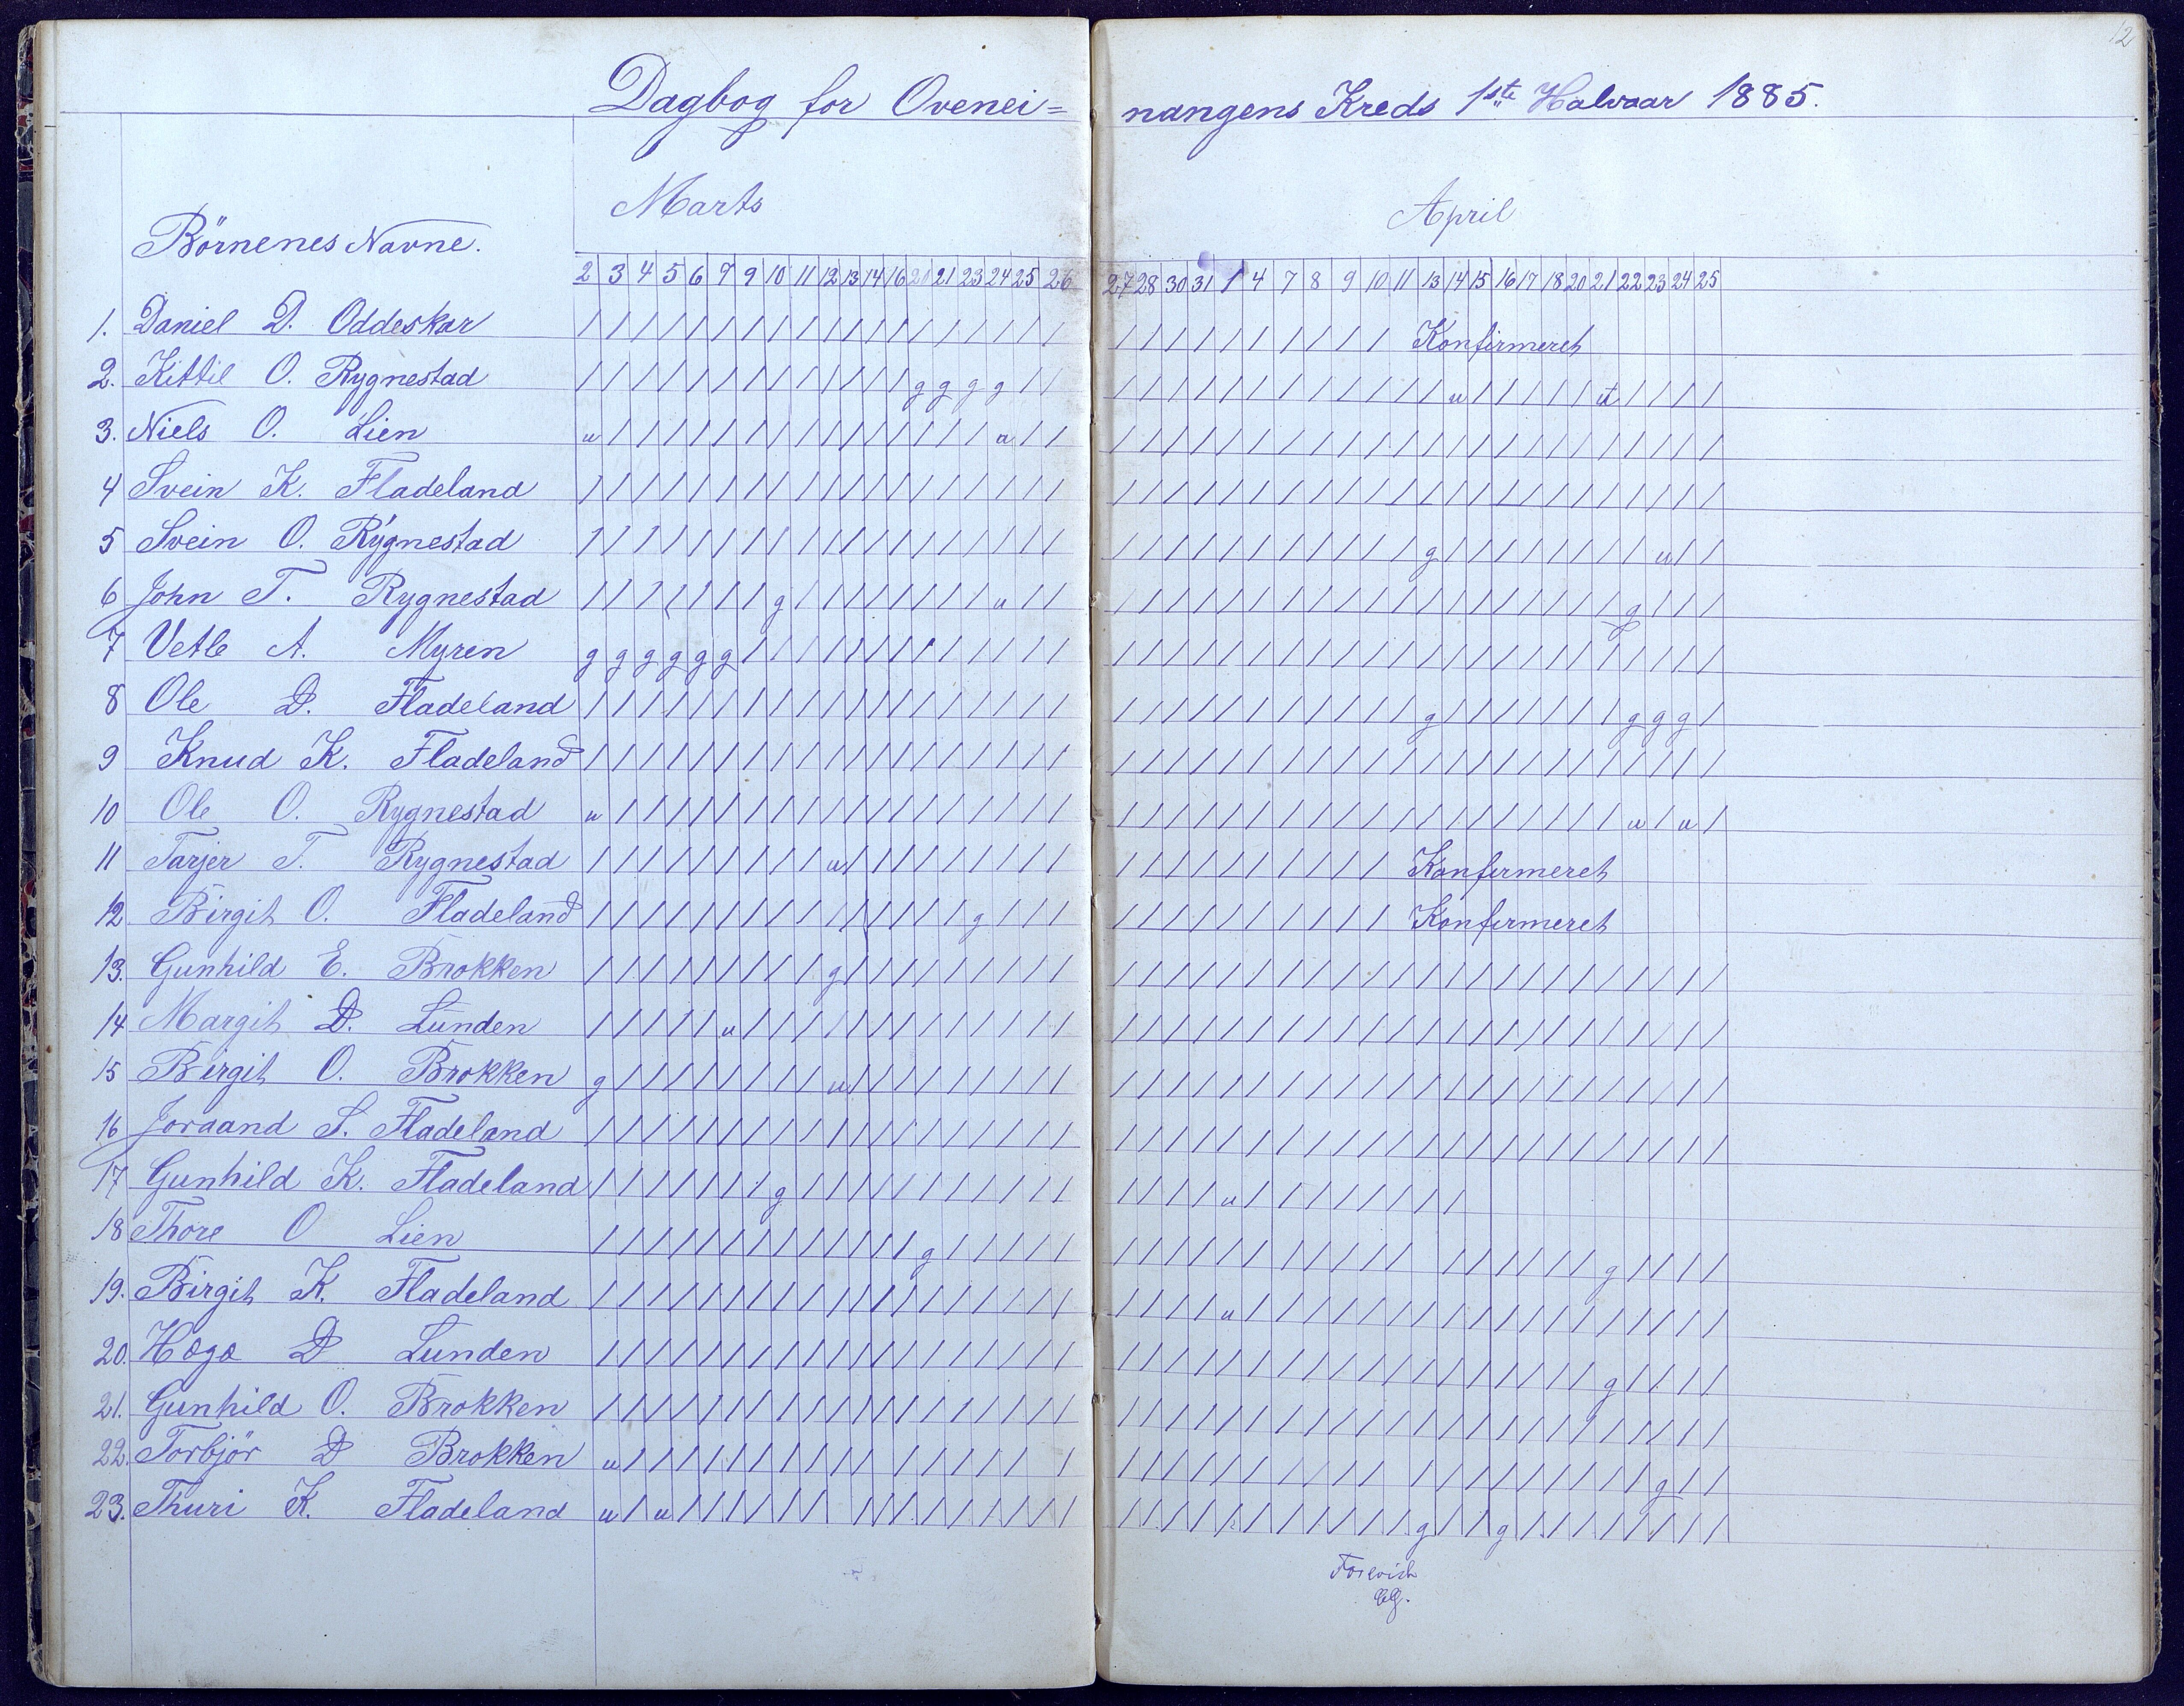 12
Dagbog for Ovenei= nangens Kreds 1ste Halvaar 1885.
Marts April
Börnenes Navne.
2 3 4 5 6 7 9 10 11 12 13 14 16 20 21 23 24 25 26 27 28 30 31 1 4 7 8 9 10 11 13 14 15 16 17 18 20 21 22 23 24 25
1. Daniel D. Oddeskar / / / / / / / / / / / / / / / / / / / / / / / / / / / / / / Konfirmeret
2. Kittil O. Rygnestad / / / / / / / / / / / / / g g g g / / / / / / / / / / / / / / / u / / / / / u / / / /
3. Niels O. Lien u / / / / / / / / / / / / / / / u / / / / / / / / / / / / / / / / / / / / / / / / /
4 Svein K. Fladeland / / / / / / / / / / / / / / / / / / / / / / / / / / / / / / / / / / / / / / / / / /
5 Svein O. Rygnestad / / / / / / / / / / / / / / / / / / / / / / / / / / / / / / g / / / / / / / / u / /
6 John T. Rygnestad / / / / / / / g / / / / / / / / u / / / / / / / / / / / / / / / / / / / / / g / / /
7 Vetle A. Myren g g g g g g / / / / / / / / / / / / / / / / / / / / / / / / / / / / / / / / / / / /
8 Ole D. Fladeland / / / / / / / / / / / / / / / / / / / / / / / / / / / / / / g / / / / / / / g g g /
9 Knud K. Fladeland / / / / / / / / / / / / / / / / / / / / / / / / / / / / / / / / / / / / / / / / / /
10 Ole O. Rygnestad u / / / / / / / / / / / / / / / / / / / / / / / / / / / / / / / / / / / / / u / u /
11 Tarjer T. Rygnestad / / / / / / / / / u / / / / / / / / / / / / / / / / / / / / Konfirmeret
12 Birgit O. Fladeland / / / / / / / / / / / / / / / g / / / / / / / / / / / / / / Konfirmeret
13. Gunhild E. Brokken / / / / / / / / / g / / / / / / / / / / / / / / / / / / / / / / / / / / / / / / / /
14 Margit D. Lunden / / / / / u / / / / / / / / / / / / / / / / / / / / / / / / / / / / / / / / / / / /
15 Birgit O. Brokken g / / / / / / / / u / / / / / / / / / / / / / / / / / / / / / / / / / / / / / / / /
16 Joraand S. Fladeland / / / / / / / / / / / / / / / / / / / / / / / / / / / / / / / / / / / / / / / / / /
17 Gunhild K. Fladeland / / / / / / / g / / / / / / / / / / / / / / / u / / / / / / / /
18 Thore O Lien / / / / / / / / / / / / / g / / / / / / / / / / / / / / / / / / / / / / / g / / / /
19. Birgit K. Fladeland / / / / / / / / / / / / / / / / / / / / / / / u / / / / / / / / / / / / / / / / / /
20. Hæge D Lunden / / / / / / / / / / / / / / / / / / / / / / / / / / / / / / / / / / / / / g / / / /
21. Gunhild O. Brokken / / / / / / / / / / / / / / / / / / / / / / / / / / / / / / / / / / / / / / / / / /
22. Torbjör D Brokken u / / / / / / / / / / / / / / / / / / / / / / / / / / / / / / / / / / / / g / /
23. Thuri K. Fladeland u / u / / / / / / / / / / / / / / / / / / / / / / / / / / g / / g / / / / / / / /